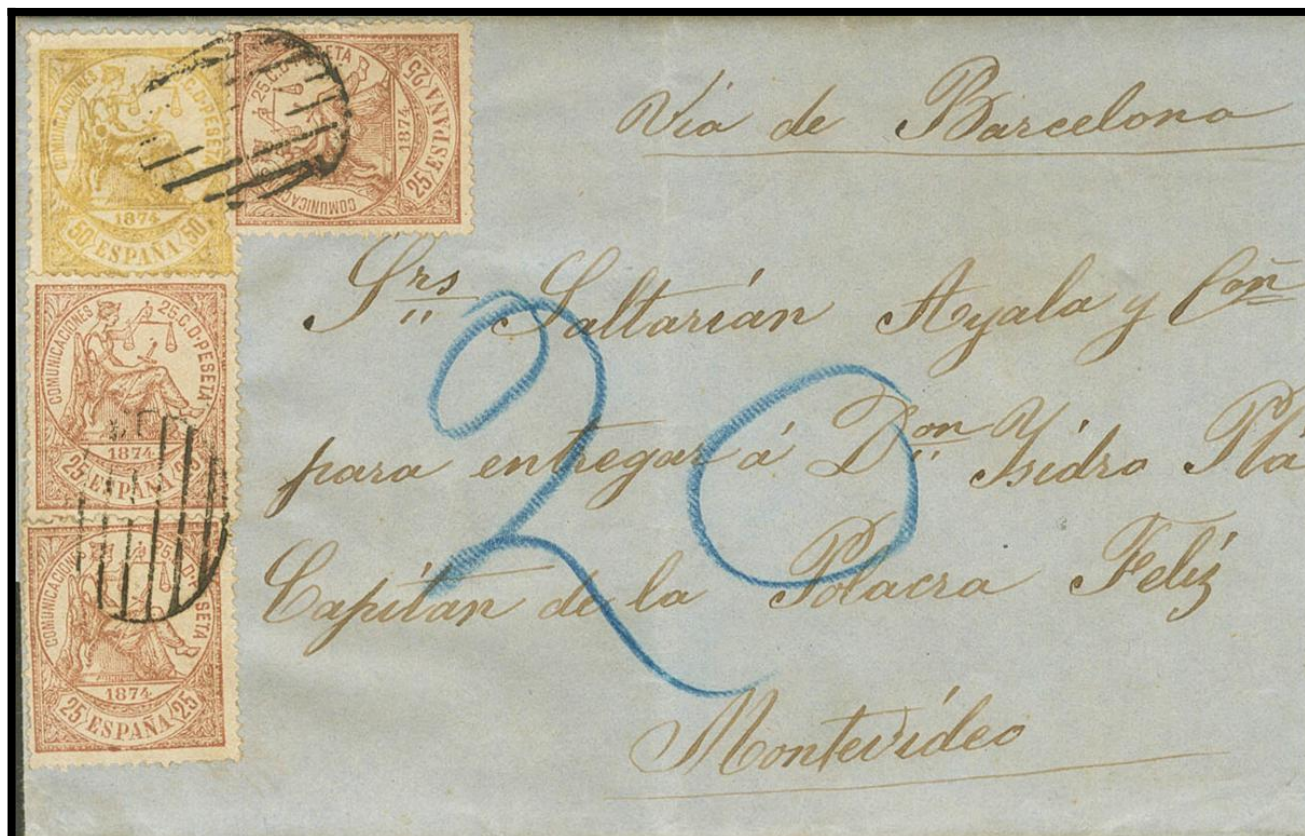 COMUNICACIONES 50 C. DE PESETA
1874
50 ESPAÑA 50
COMUNICACIONES 25 C. DE PESETA
1874
25 ESPAÑA 25
COMUNICACIONES 25 C. DE PESETA
1874
25 ESPAÑA 25
COMUNICACIONES 25 C. DE PESETA
1874
25 ESPAÑA 25
Via de Barcelona
Srs Saltarián Ayala y Cañ
para entregar á Don Ysidro Plá
Capitan de la Polacra Feliz
Montevídeo
20